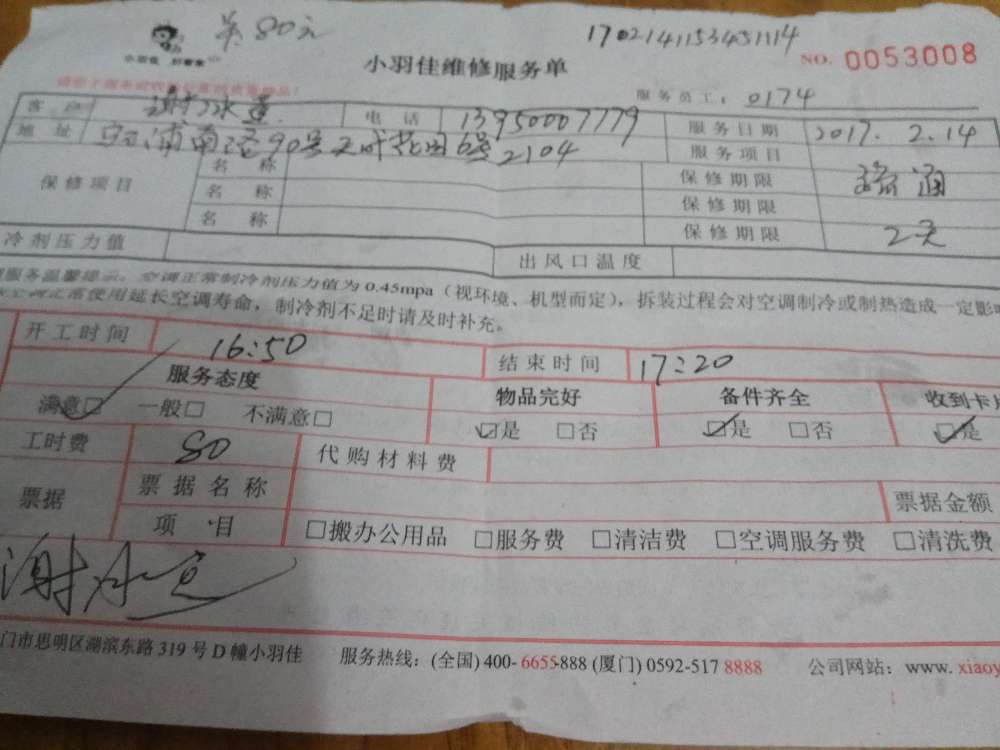 共80元
17021411534511114
小羽佳 好管家
小羽佳维修服务单
NO. 0053008
服务员工: 0174
客户 谢水 电话 13950007779 服务日期 2017.2.14
地址 浦南路90号天成花园6号2104 服务项目 疏通
保修项目 名称 保修期限
名称 保修期限
名称 保修期限 2天
冷剂压力值 出风口温度
服务温馨提示: 空调正常制冷剂压力值为 0.45mpa (视环境、机型而定), 拆装过程会对空调制冷或制热造成一定影响
空调正常使用延长空调寿命, 制冷剂不足时请及时补充。
开工时间 16:50 结束时间 17:20
服务态度 物品完好 备件齐全 收到卡片
满意☑ 一般□ 不满意□ ☑是 □否 ☑是 □否 ☑是
工时费 80 代购材料费
票据 票据名称 票据金额
项目 □搬办公用品 □服务费 □清洁费 □空调服务费 □清洗费
谢水
门市思明区湖滨东路 319 号 D 幢小羽佳 服务热线: (全国) 400-6655-888 (厦门) 0592-517 8888 公司网站: www. xiaoy